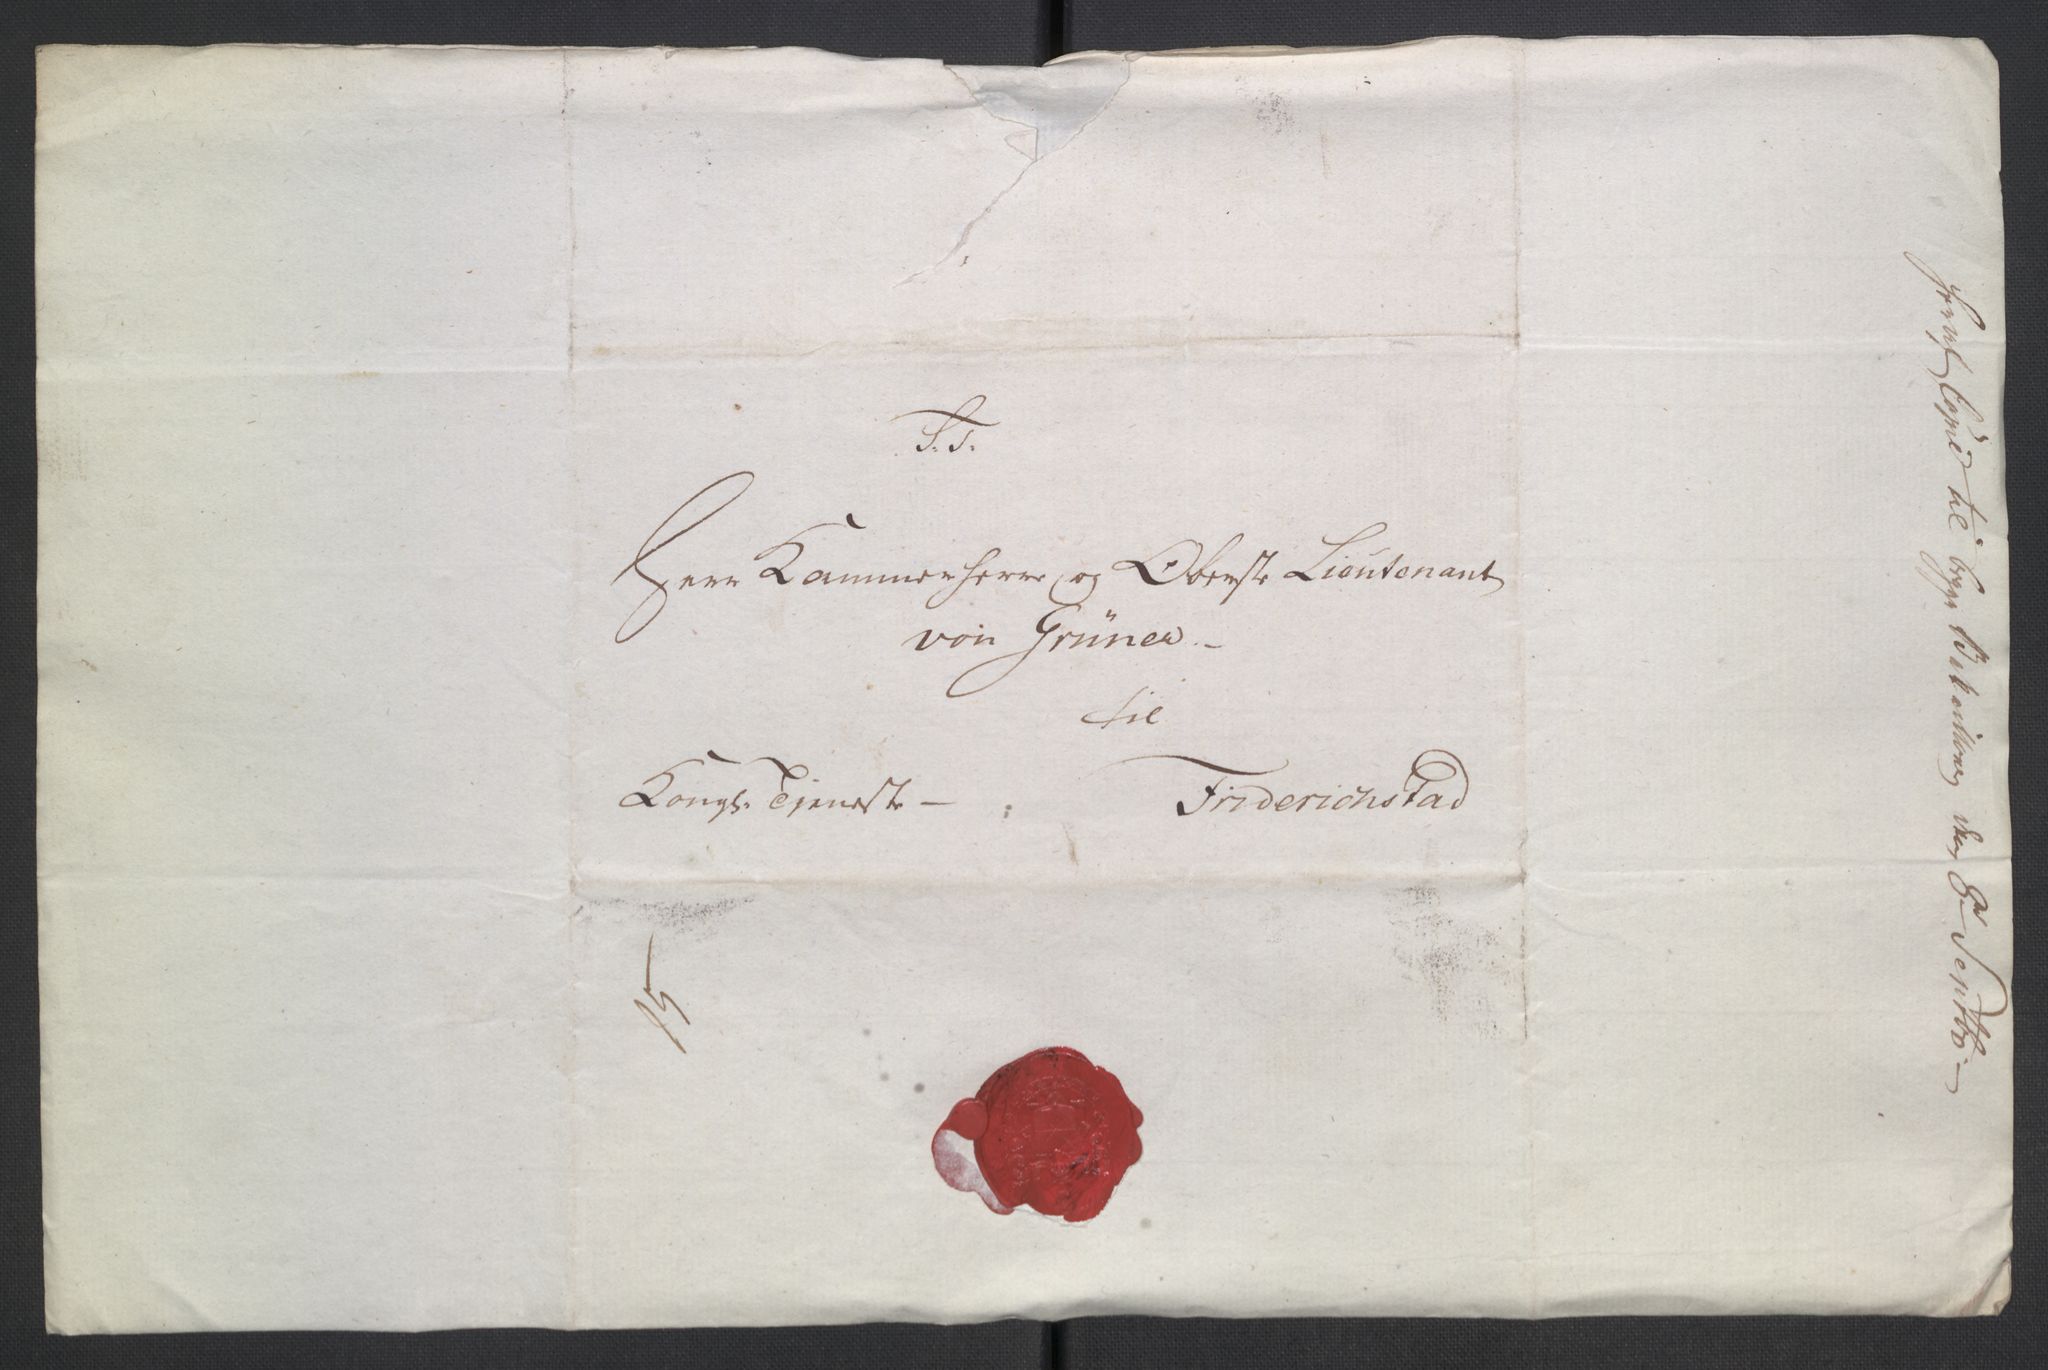 S. T.
Herr Kammerherre og Oberste Lieutenant
von Grüner.
til
Kongl. Tjeneste — Friderichstad
til den 8 Septbr.